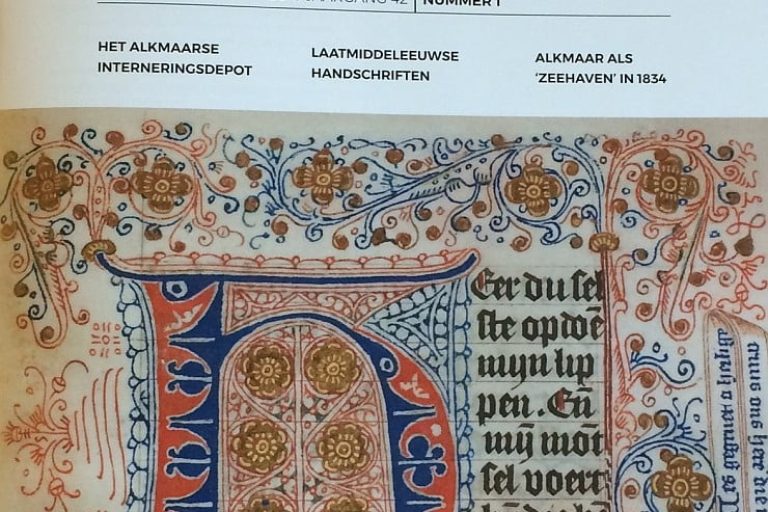 JAARGANG 42 | NUMMER 1
HET ALKMAARSE
INTERNERINGSDEPOT
LAATMIDDELEEUWSE
HANDSCHRIFTEN
ALKMAAR ALS
‘ZEEHAVEN’ IN 1834
Eer du sel
ste opdoē
mijn lip
pen. En̄
mij mōt
sel voert